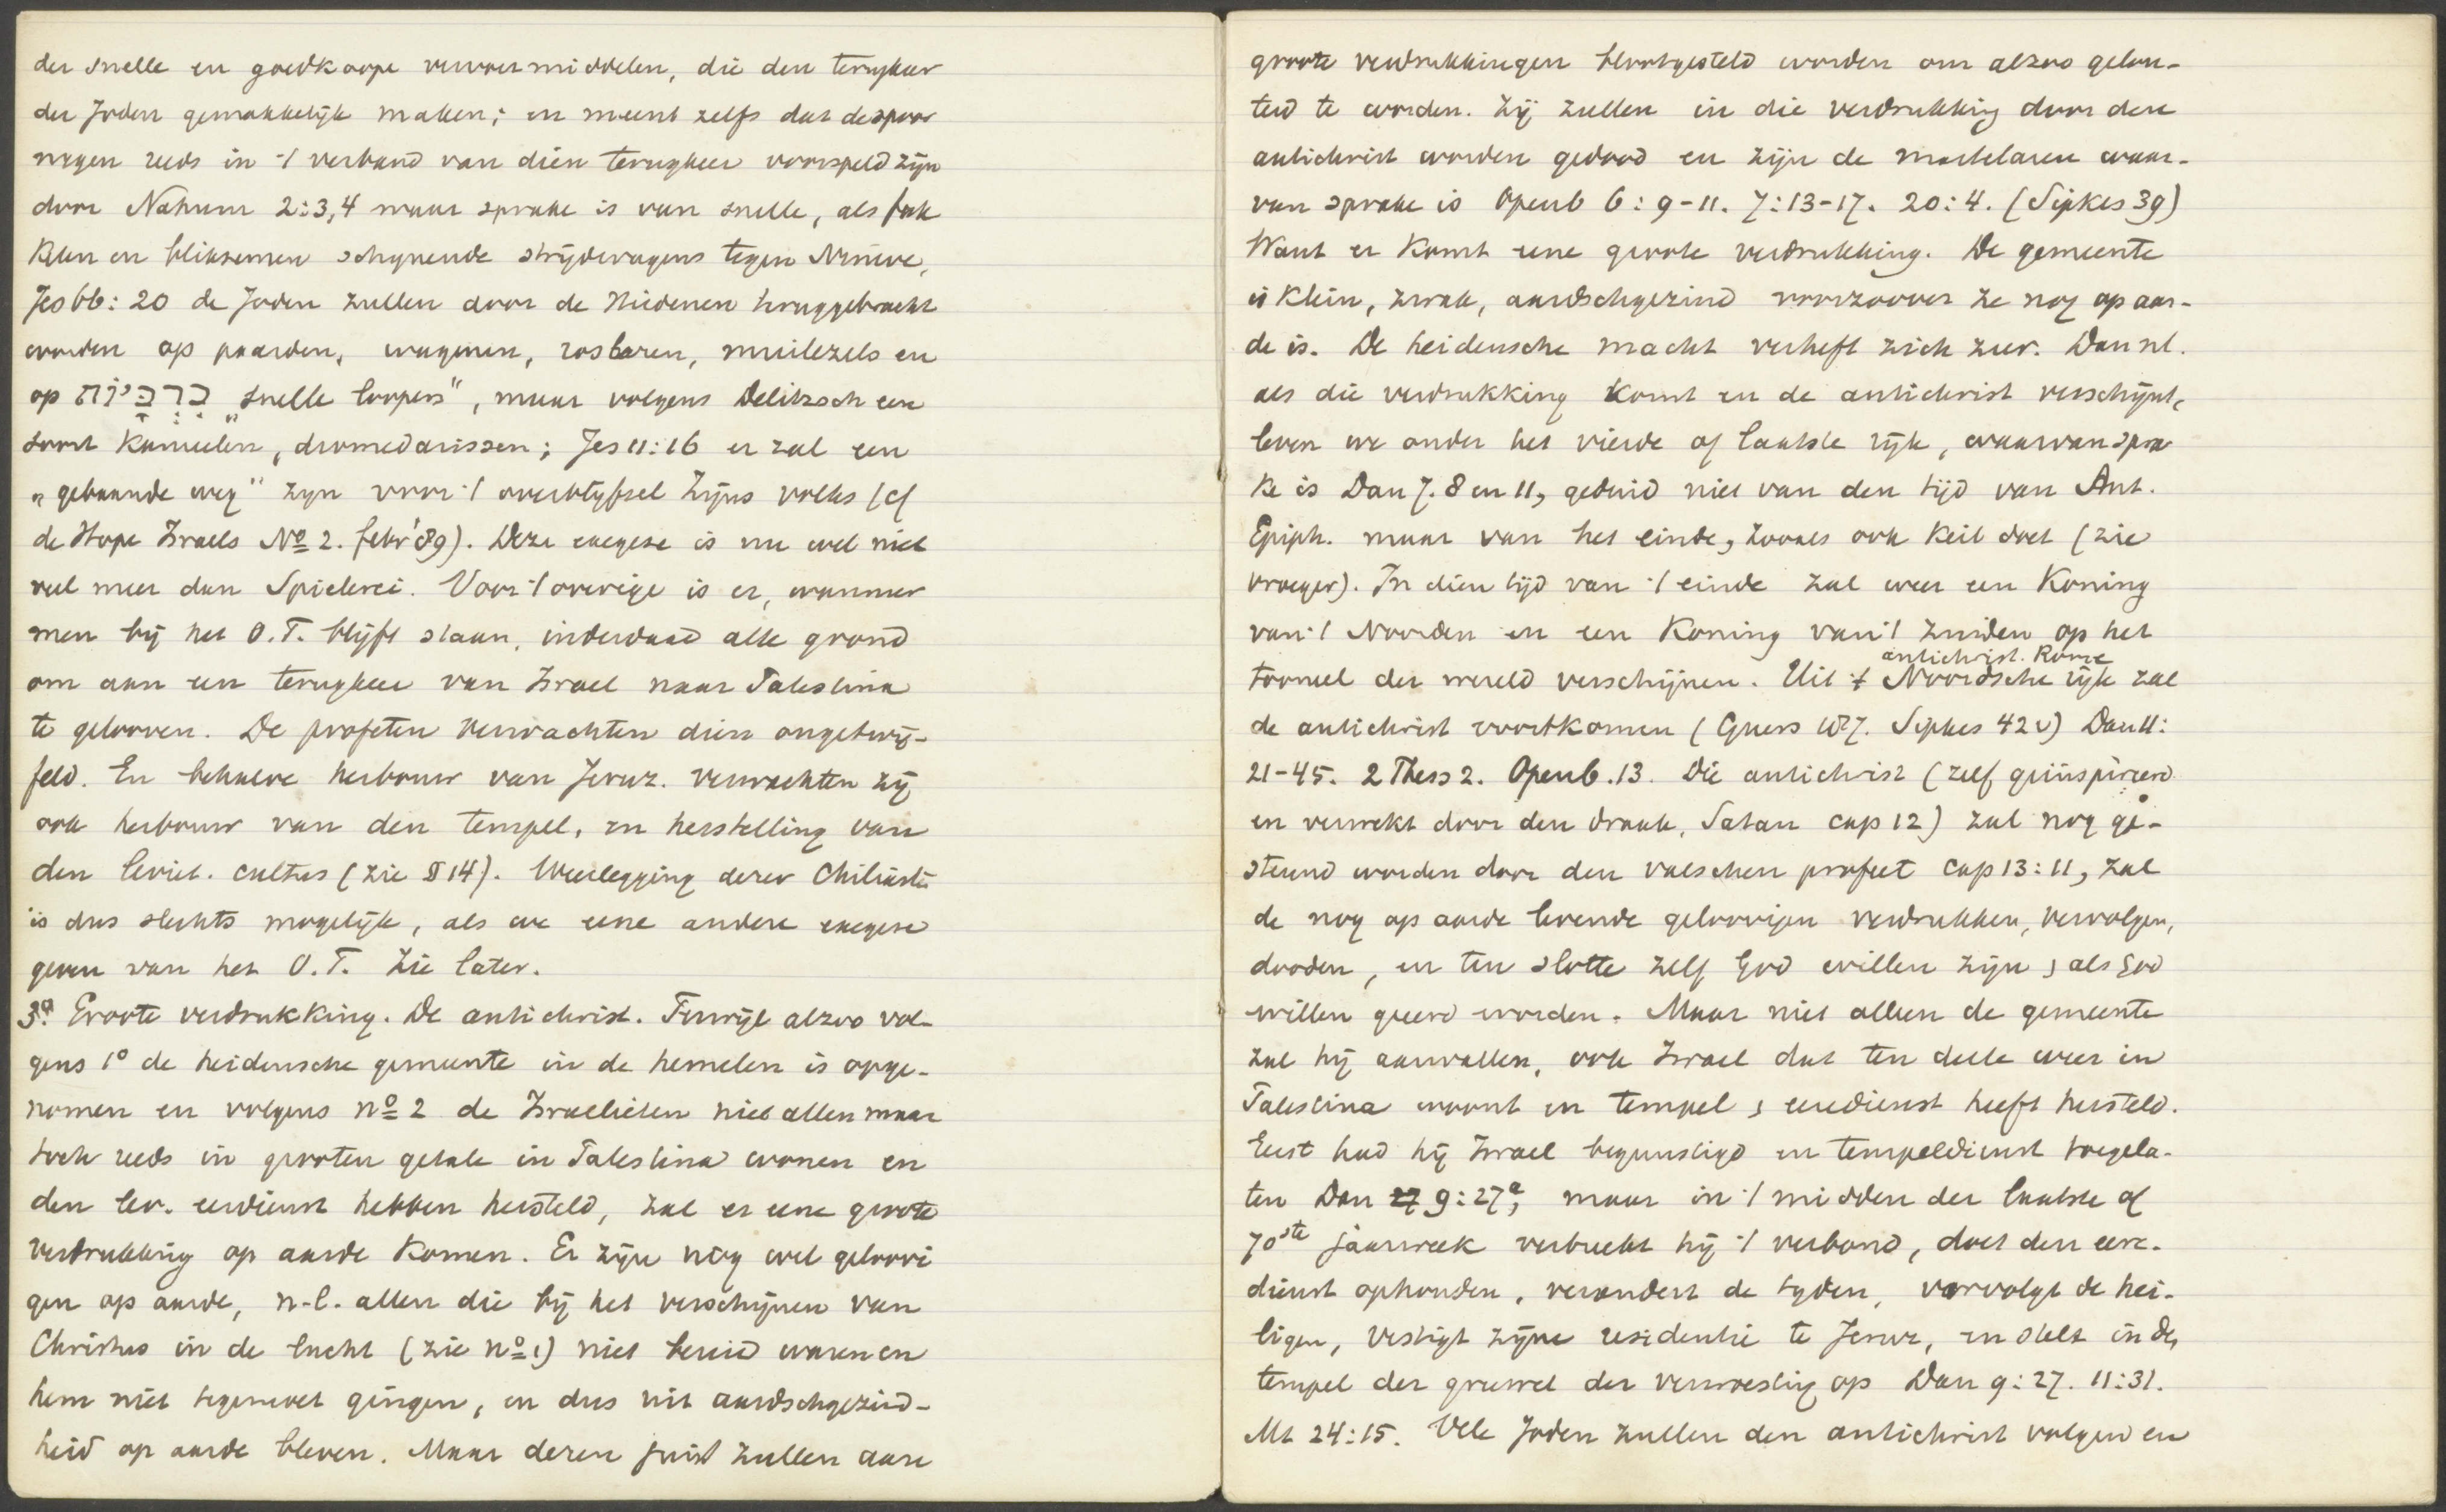 der snelle en goedkoope vervoermiddelen, die den terugkeer
der Joden gemakkelijk maken; en meent zelfs dat de spoor
wegen reeds in 't verband van dien terugkeer voorspeld zijn
door Nahum 2:3,4 waar sprake is van snelle, als fak
kelen en bliksemen schijnende strijdwagens tegen Nineve,
Jes 66: 20 de Joden zullen door de Heidenen teruggebracht
worden op paarden, wagenen, rosbaren, muilezels en
op כִּרְכָּרוֹת „snelle loopers", maar volgens Delitzsch een
soort kameelen, dromedarissen; Jes 11:16 er zal een
„gebaande weg" zijn voor 't overblijfsel Zijns volks (cf
de Hope Israels No 2. febr '89). Deze exegese is nu wel niet
veel meer dan Spielerei. Voor 't overige is er, wanneer
men bij het O.T. blijft staan, inderdaad alle grond
om aan een terugkeer van Israel naar Palestina
te gelooven. De profeten verwachten dien ongetwij-
feld. En behalve herbouw van Jeruz. verwachten zij
ook herbouw van den tempel, en herstelling van
den leviet. cultus (zie § 14). Weerlegging dezer Chiliasten
is dus slechts mogelijk, als we eene andere exegese
geven van het O.T. Zie later.
3o. Groote verdrukking. De antichrist. Terwijl alzoo vol-
gens 1o de heidensche gemeente in de hemelen is opge-
nomen en volgens no 2 de Israelieten niet allen maar
toch reeds in grooten getale in Palestina wonen en
den lev. eerdienst hebben hersteld, zal er eene groote
verdrukking op aarde komen. Er zijn nog wel geloovi
gen op aarde, n.l. allen die bij het verschijnen van
Christus in de lucht (zie no 1) niet bereid waren en
hem niet tegemoet gingen, en dus uit aardschgezind-
heid op aarde bleven. Maar dezen juist zullen aan
groote verdrukkingen blootgesteld worden om alzoo gelou-
terd te worden. Zij zullen in die verdrukking door den
antichrist worden gedood en zijn de martelaren waar-
van sprake is Openb 6: 9-11. 7:13-17. 20:4. (Sipkes 39)
Want er komt eene groote verdrukking. De gemeente
is klein, zwak, aardschgezind voorzoover ze nog op aar-
de is. De heidensche macht verheft zich zeer. Dan nl.
als die verdrukking komt en de antichrist verschijnt,
leven we onder het vierde of laatste rijk, waarvan spra
ke is Dan 7. 8 en 11, geduid niet van den tijd van Ant.
Epiph. maar van het einde, zooals ook Keil doet (zie
vroeger). In dien tijd van 't einde zal weer een Koning
van 't Noorden en een Koning van 't Zuiden op het
antichrist. Rome
tooneel der wereld verschijnen. Uit 't Noordsche rijk zal
de antichrist voortkomen (Guers 107. Sipkes 42v) Dan 11:
21-45. 2 Thess 2. Openb. 13. Die antichrist (zelf geïnspireerd
en verwekt door den draak, Satan cap 12) zal nog ge-
steund worden door den valschen profeet cap 13: 11, zal
de nog op aarde levende geloovigen verdrukken, vervolgen,
dooden, en ten slotte zelf God willen zijn & als God
willen geeerd worden. Maar niet alleen de gemeente
zal hij aanvallen, ook Israel dat ten deele weer in
Palestina woont en tempel & eeredienst heeft hersteld.
Eerst had hij Israel begunstigd en tempeldienst toegela-
ten Dan 9:27a, maar in 't midden der laatste of
70ste jaarweek verbreekt hij 't verbond, doet den eere-
dienst ophouden, verandert de tijden, vervolgt de hei-
ligen, vestigt zijne residentie te Jeruz, en stelt in den
tempel der gruwel der verwoesting op Dan 9:27. 11:31.
Mt 24:15. Vele Joden zullen den antichrist volgen en